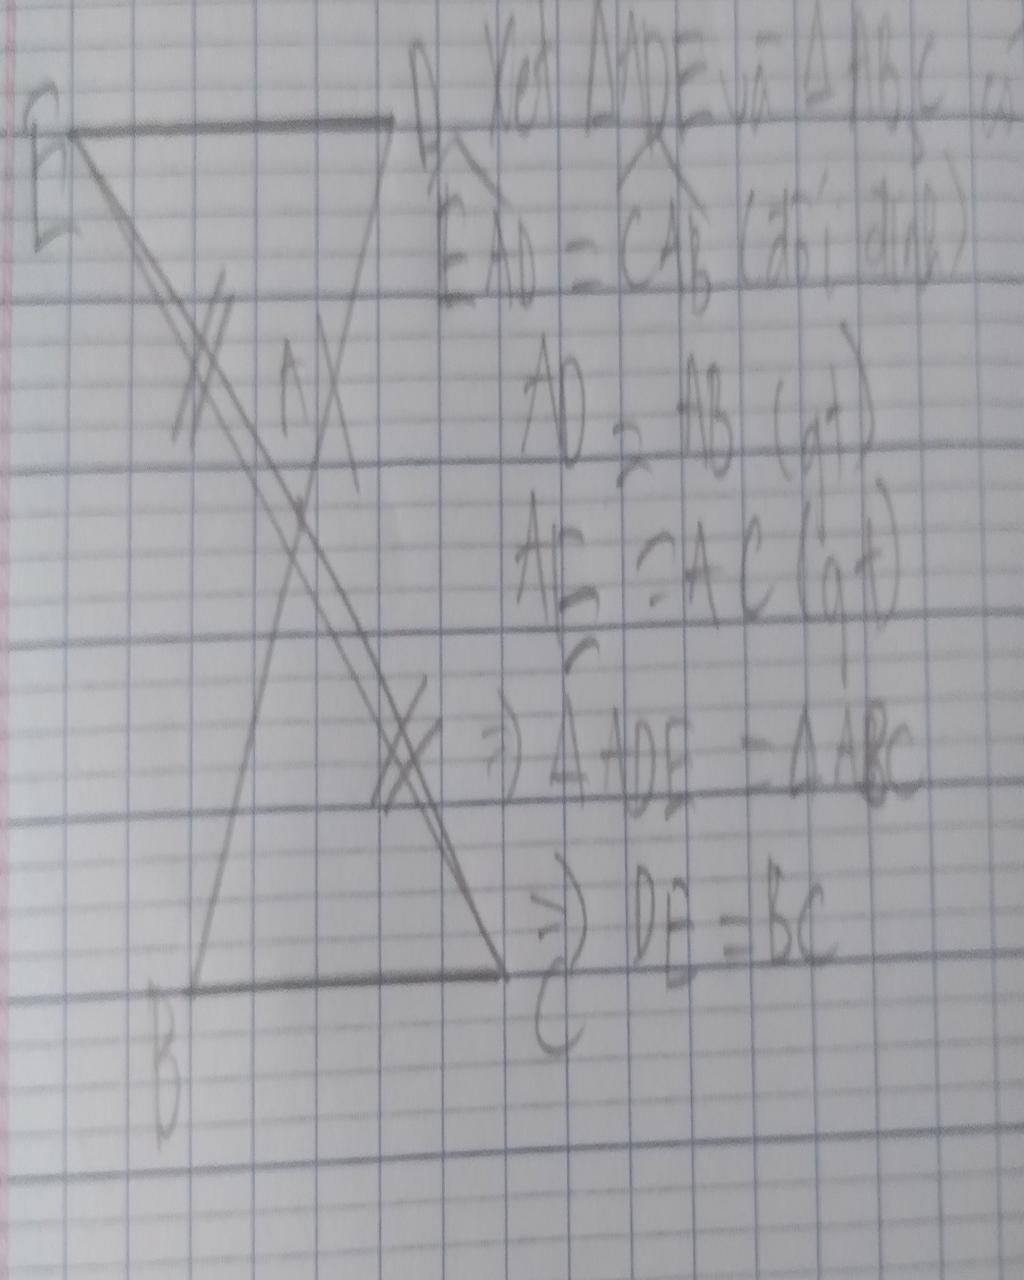 E
D
A
B
C
Xét ΔADE và ΔABC có
EAD = CAB (đối đỉnh)
AD = AB (gt)
AE = AC (gt)
=> ΔADE = ΔABC
=> DE = BC